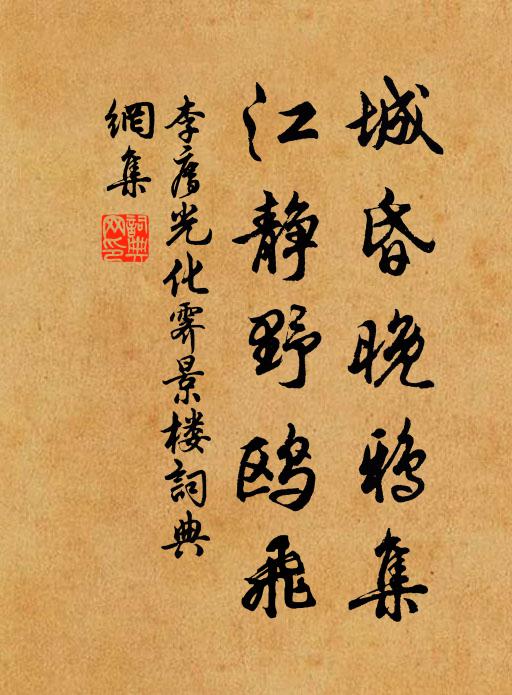 城昏晚鸦集
江静野鸥飞
李廌光化霁景楼詞典
網集
詞典网印